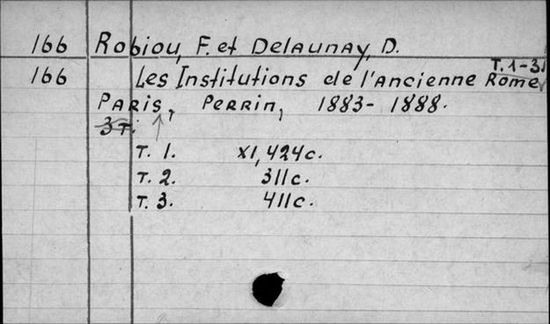 166 Robiou, F. et Delaunay, D.
T. 1-3
166 Les Institutions de l'Ancienne Rome
Paris, Perrin, 1883-1888.
3 т.
T. 1. XI, 424c.
T. 2. 311c.
T. 3. 411c.